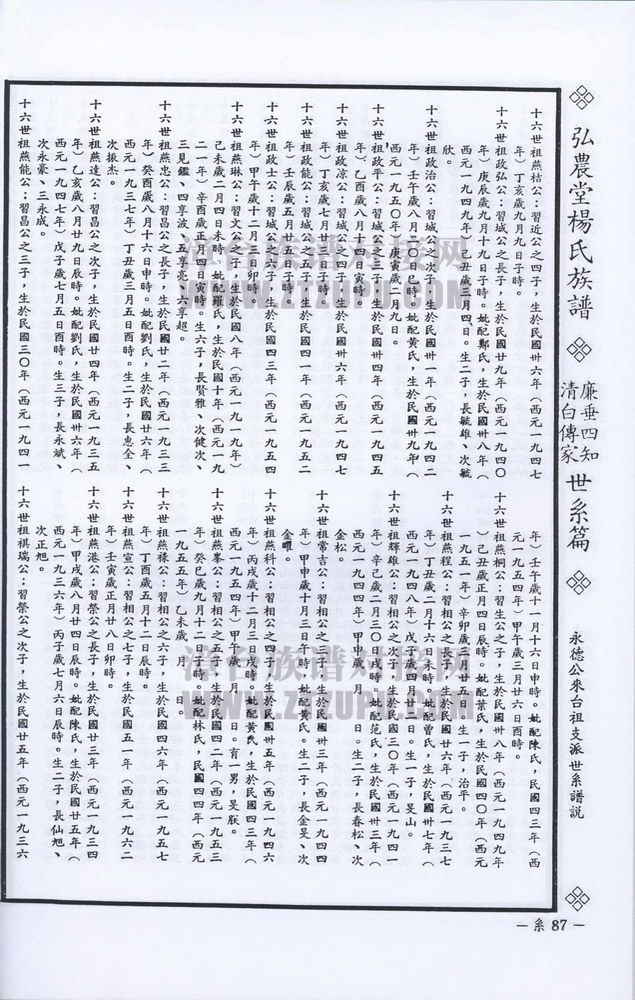 弘農堂楊氏族譜
廉垂四知
清白傳家
世系篇
永德公來台祖支派世系譜說
十六世祖燕桔公：習近公之四子，生於民國卅六年（西元一九四七
年）丁亥歲九月九日子時。
十六世祖政弘公：習城公之長子，生於民國廿九年（西元一九四〇
年）庚辰歲九月十九日子時。妣配鄭氏，生於民國卅八年（
西元一九四九年）己丑歲三月四日。生二子，長毓雄、次毓
欣。
十六世祖政治公：習城公之次子，生於民國卅一年（西元一九四二
年）壬午歲八月二〇日巳時。妣配黃氏，生於民國卅九年（
西元一九五〇年）庚寅歲二月九日。
十六世祖政平公：習城公之三子，生於民國卅四年（西元一九四五
年）乙酉歲八月十四日寅時。
十六世祖政涼公：習城公之四子，生於民國卅六年（西元一九四七
年）丁亥歲七月卅日子時。
十六世祖政能公：習城公之五子，生於民國四一年（西元一九五二
年）壬辰歲五月廿五日子時。
十六世祖政士公：習城公之六子，生於民國四三年（西元一九五四
年）甲午歲十二月三日卯時。
十六世祖燕琳公：習文公之子，生於民國八年（西元一九一九年）
己未歲二月四日未時。妣配羅氏，生於民國十年（西元一九
二一年）辛酉歲正月四日寅時。生六子，長賢雅、次健次、
三見鑑、四享波、五享亮、六享超。
十六世祖燕忠公：習昌公之長子，生於民國廿二年（西元一九三三
年）癸酉歲八月十六日申時。妣配劉氏，生於民國廿六年（
西元一九三七年）丁丑歲三月五日酉時。生二子，長惠全、
次振杰。
十六世祖燕達公：習昌公之次子，生於民國廿四年（西元一九三五
年）乙亥歲八月廿九日辰時。妣配劉氏，生於民國卅六年（
西元一九四七年）戊子歲七月五日酉時。生三子，長永斌、
次永豪、三永成。
十六世祖燕能公：習昌公之三子，生於民國三〇年（西元一九四一
年）壬午歲十一月十六日申時。妣配陳氏，民國四三年（西
元一九五四年）甲午歲三月廿六日酉時。
十六世祖燕桐公：習生公之子，生於民國卅八年（西元一九四九年
）己丑歲正月四日辰時。妣配葉氏，生於民國四〇年（西元
一九五一年）辛卯歲八月廿五日。生一子，治平。
十六世祖燕程公：習相公之長子，生於民國廿六年（西元一九三七
年）丁丑歲二月十六日未時。妣配曾氏，生於民國卅七年（
西元一九四八）戊子歲四月廿二日。生一子，旻山。
十六世祖輝雄公：習相公之次子，生於民國三〇年（西元一九四一
年）辛巳歲二月三〇日戌時。妣配范氏，生於民國卅三年（
西元一九四四年）甲申歲　月　日。生二子，長春松、次
金松。
十六世祖常吉公：習相公之三子，生於民國卅三年（西元一九四四
年）甲申歲十月三日午時。妣配黃氏。生二子，長金旻、次
金曜。
十六世祖燕科公：習相公之四子，生於民國卅五年（西元一九四六
年）丙戌歲十二月三日戌時。妣配黃氏，生於民國四三年（
西元一九五四年）甲午歲　月　日。育一男，旻朕。
十六世祖燕峯公：習相公之五子，生於民國四二年（西元一九五三
年）癸巳歲九月十二日子時。妣配林氏，民國四四年（西元
一九五五年）乙未歲　月　日。
十六世祖燕祿公：習相公之六子，生於民國四六年（西元一九五七
年）丁酉歲五月十二日辰時。
十六世祖燕宣公：習相公之七子，生於民國五一年（西元一九六二
年）壬寅歲正月廿八日卯時。
十六世祖燕港公：習榮公之長子，生於民國廿三年（西元一九三四
年）甲戌歲八月廿四日辰時。妣配陳氏，生於民國廿五年（
西元一九三六年）丙子歲七月六日辰時。生二子，長仙旭、
次正旭。
十六世祖祺瑞公：習榮公之次子，生於民國廿五年（西元一九三六
－系 87－
WWW.ZTZUPU.COM
WWW.ZTZUPU.COM